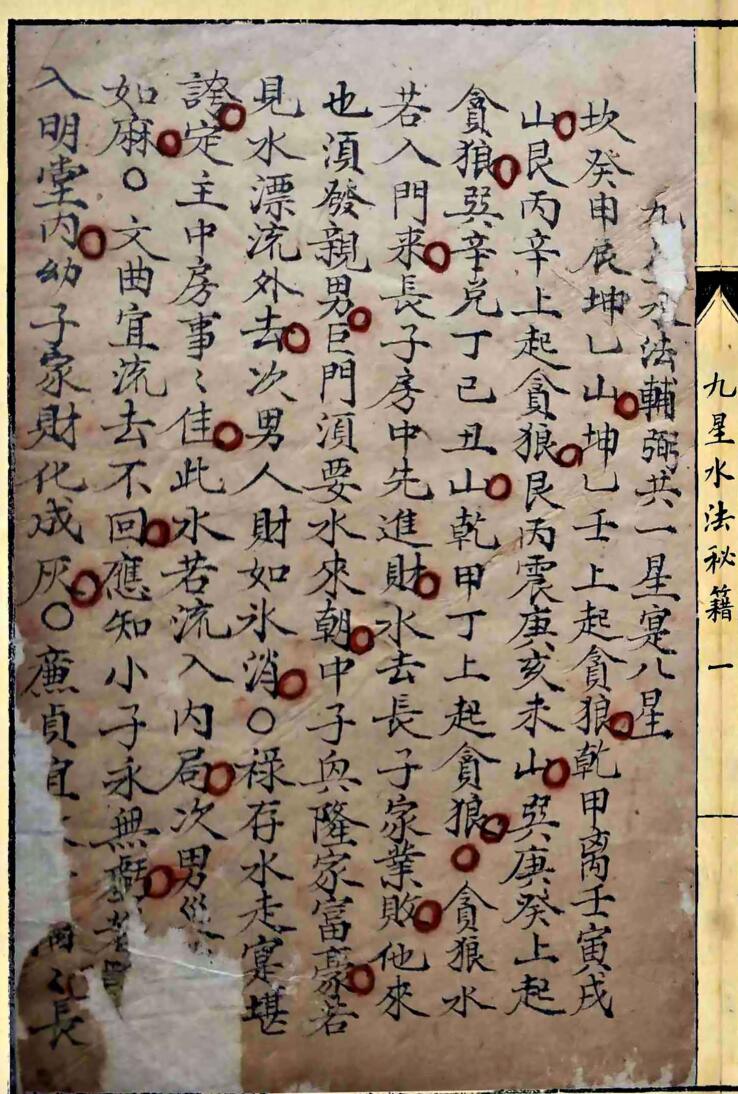 九水法輔弼共一星寔八星
坎癸申辰坤乚山坤乚壬上起貪狼乾甲离壬寅戌
山艮丙辛上起貪狼艮丙震庚亥未山巽庚癸上起
貪狼巽辛兌丁己丑山乾甲丁上起貪狼貪狼水
若入門来長子房中先進財水去長子家業敗他來
也湏發親男巨門湏要水來朝中子興隆家富豪若
見水漂流外去次男人財如氷消○祿存水走寔堪
誇定主中房事〻佳此水若流入内局次男
如麻○文曲宜流去不回應知小子永無
入明堂内幼子家財化成灰○廉貞宜長
九星水法秘籍一